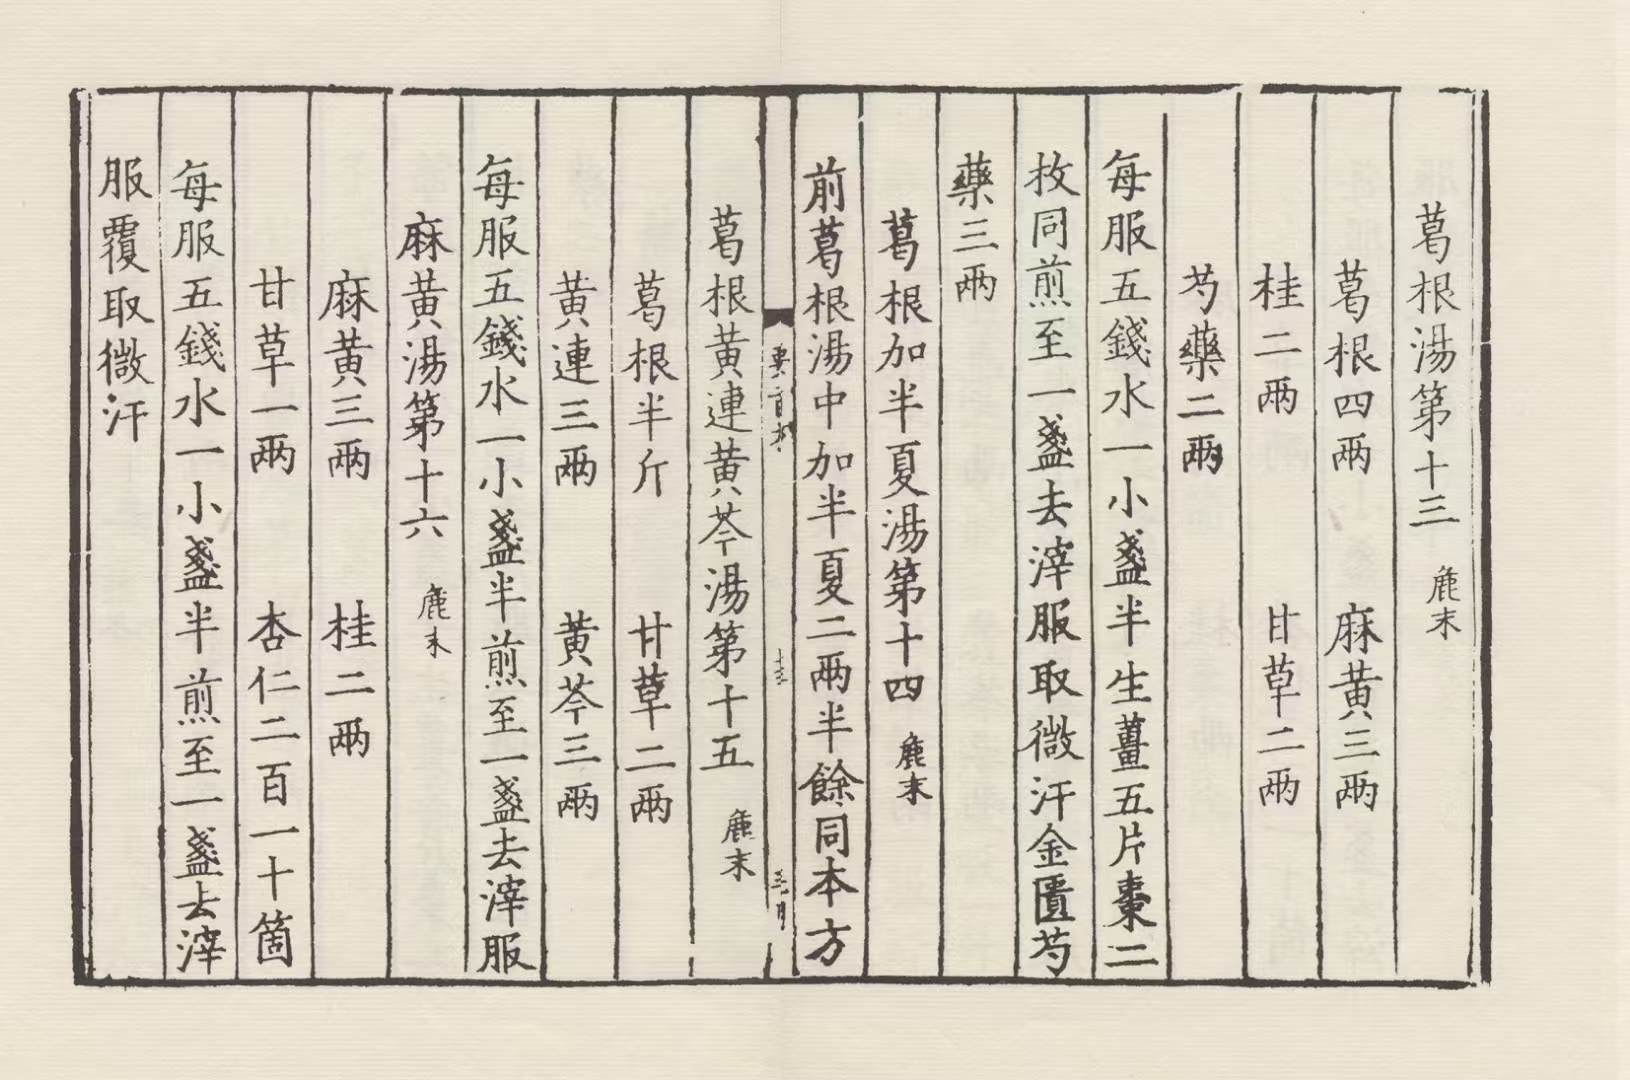 葛根湯第十三 麄末
葛根四兩 麻黄三兩
桂二兩 甘草二兩
芍藥二兩
每服五錢水一小盞半生薑五片棗二
枚同煎至一盞去滓服取微汗金匱芍
藥三兩
葛根加半夏湯第十四 麄末
前葛根湯中加半夏二兩半餘同本方
葛根黄連黄芩湯第十五 麄末
葛根半斤 甘草二兩
黄連三兩 黄芩三兩
每服五錢水一小盞半煎至一盞去滓服
麻黄湯第十六 麄末
麻黄三兩 桂二兩
甘草一兩 杏仁二百一十箇
每服五錢水一小盞半煎至一盞去滓
服覆取微汗